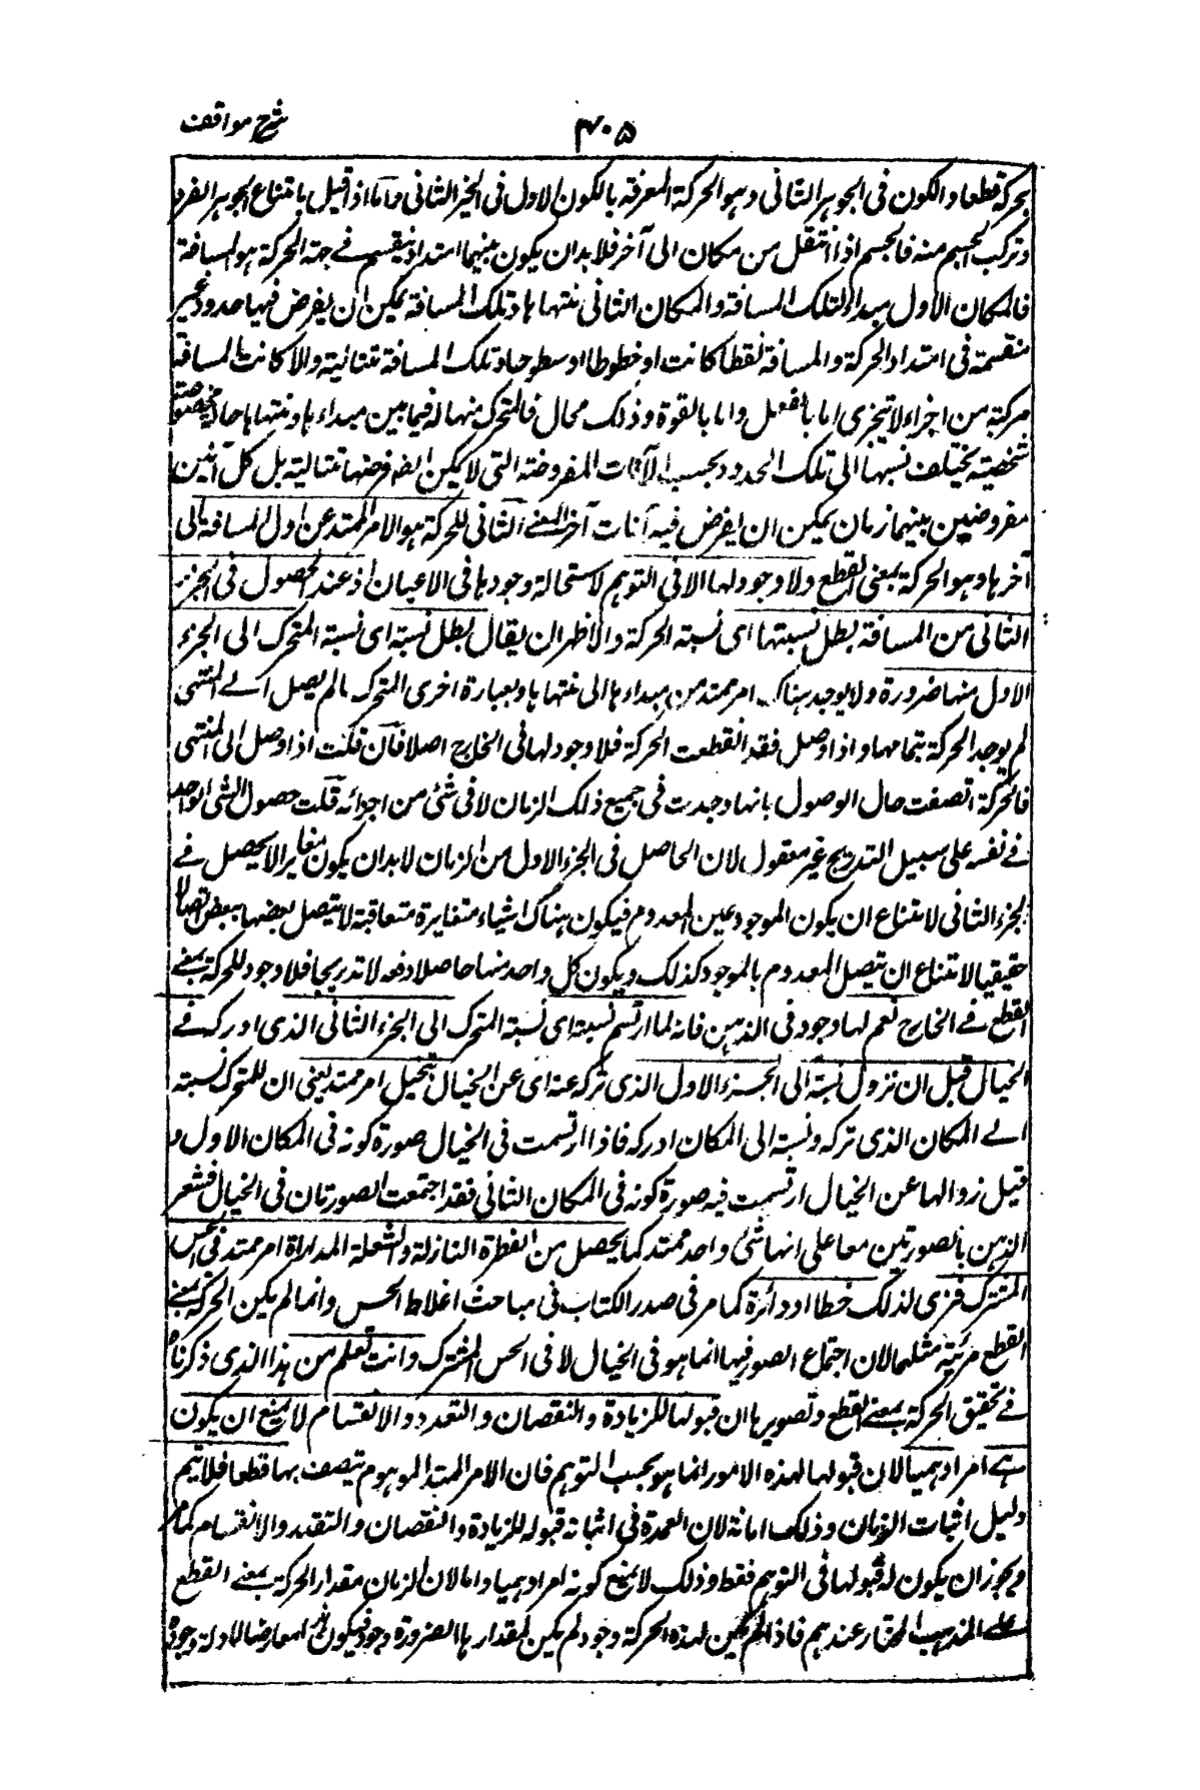 شرح مواقف
۴۰۵
بحركة قطعا والكون في الجوهر الثاني وهو الحركة المعرفة بالكون الاول في الحيز الثاني واما اذا قيل بامتناع الجوهر الفرد
وتركب الجسم منه فالجسم اذا انتقل من مكان الى آخر فلا بد ان يكون بينهما امتداد ينقسم في جهة الحركة هو المسافة
فالمكان الاول مبدأ لتلك المسافة والمكان الثاني منتهاها وتلك المسافة يمكن ان يفرض فيها حدود غير
منقسمة في امتداد الحركة والمسافة نقطا كانت او خطوطا او سطوحا وتلك المسافة متتالية والا كانت المسافة
مركبة من اجزاء لا تتجزى اما بالفعل واما بالقوة وذلك محال فالمتحرك منها له فيما بين مبداءها ومنتهاها حالة مخصوصة
شخصية يختلف نسبها الى تلك الحدود بحسب الآنات المفروضة التي لا يمكن ايضا فرضها متتالية بل كل آنين
مفروضين بينهما زمان يمكن ان يفرض فيه آنات آخر المعنى الثاني للحركة هو الامر الممتد عن اول المسافة الى
آخرها وهو الحركة بمعنى القطع ولا وجود لها الا في التوهم لاستحالة وجودها في الاعيان اذ عند الحصول في الجزء
الثاني من المسافة بطل نسبتها اى نسبة الحركة والاظهر ان يقال بطل نسبته اى نسبة المتحرك الى الجزء
الاول منها ضرورة ولا يوجد هناك امر ممتد من مبداءها الى منتهاها وبعبارة اخرى المتحرك ما لم يصل الى المنتهى
لم يوجد الحركة بتمامها واذا وصل فقد انقطعت الحركة فلا وجود لها في الخارج اصلا فان قلت اذا وصل الى المنتهى
فالحركة اتصفت حال الوصول بانها وجدت في جميع ذلك الزمان لا في شئ من اجزائه قلت حصول الشئ الواحد
في نفسه على سبيل التدريج غير معقول لان الحاصل في الجزء الاول من الزمان لا بد ان يكون مغاير الا يحصل في
الجزء الثاني لامتناع ان يكون الموجود عين المعدوم فيكون هناك اشياء متغايرة متعاقبة لا يتصل بعضها ببعض اتصالا
حقيقيا لامتناع ان يتصل المعدوم بالموجود كذلك ويكون كل واحد منها حاصلا دفعة لا تدريجا فلا وجود للحركة بمعنى
القطع في الخارج نعم لها وجود في الذهن فانه لما ارتسم نسبة اى نسبة المتحرك الى الجزء الثاني الذى ادركه في
الخيال قبل ان تزول نسبته الى الجزء الاول الذى تركه عنه اى عن الخيال يتخيل امر ممتد يعنى ان للمتحرك نسبة
الى المكان الذى تركه ونسبة الى المكان ادركه فاذا ارتسمت في الخيال صورة كونه في المكان الاول و
قبل زوالها عن الخيال ارتسمت فيه صورة كونه في المكان الثاني فقد اجتمعت الصورتان في الخيال فشعر
الذهن بالصورتين معا على انها شئ واحد ممتد كما يحصل من القطرة النازلة والشعلة المدارة امر ممتد في الحس
المشترك فترى لذلك خطا او دائرة كما مر في صدر الكتاب في مباحث اغلاط الحس وانما لم يكن الحركة بمعنى
القطع مرئية مثلهما لان اجتماع الصور فيها انما هو في الخيال لا في الحس المشترك وانت تعلم من هذا الذى ذكرناه
في تحقيق الحركة بمعنى القطع وتصويرها ان قبولها للزيادة والنقصان والتعدد والانقسام لا يمنع ان يكون
هى امرا وهميا لان قبولها لهذه الامور انما هو بحسب التوهم فان الامر الممتد الموهوم يتصف بها قطعا فلا يتم
دليل اثبات الزمان وذلك اما انه لان العمدة في اثباته قبوله للزيادة والنقصان والتقدر والانقسام كما مر
ويجوز ان يكون له قبولها في التوهم فقط وذلك لا يمنع كونه امرا وهميا واما لان الزمان مقدار الحركة بمعنى القطع
على المذهب المختار عندهم فاذا لم يكن لهذه الحركة وجود لم يكن لمقدارها بالضرورة وجود فيكون معارضا لادلة وجوده